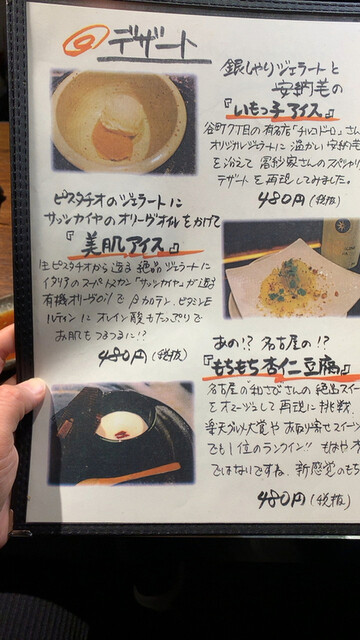 デザート
銀しゃりジェラートと
安納芋の
『いもっ子アイス』
谷町7丁目の有名店「チルコドーロ」さん
オリジナルジェラートに温かい安納芋
を添えて
デザートを再現してみました。
480円(税抜)
ピスタチオのジェラートに
サッシカイヤのオリーヴオイルをかけて
『美肌アイス』
生ピスタチオから造る絶品ジェラートに
イタリアのスーパートスカン「サッシカイヤ」が造る
有機オリーヴoilでβカロテン、ビタミンE
ルテインにオレイン酸もたっぷりで
お肌もつるつるに!?
480円(税抜)
あの!?名古屋の!?
『もちもち杏仁豆腐』
名古屋の和さびさんの絶品スイー
をオマージュして再現に挑戦
楽天グルメ大賞やお取り寄せスイーツ
でも1位のランクイン!!もはや杏
ではないですね、新感覚のもち
480円(税抜)